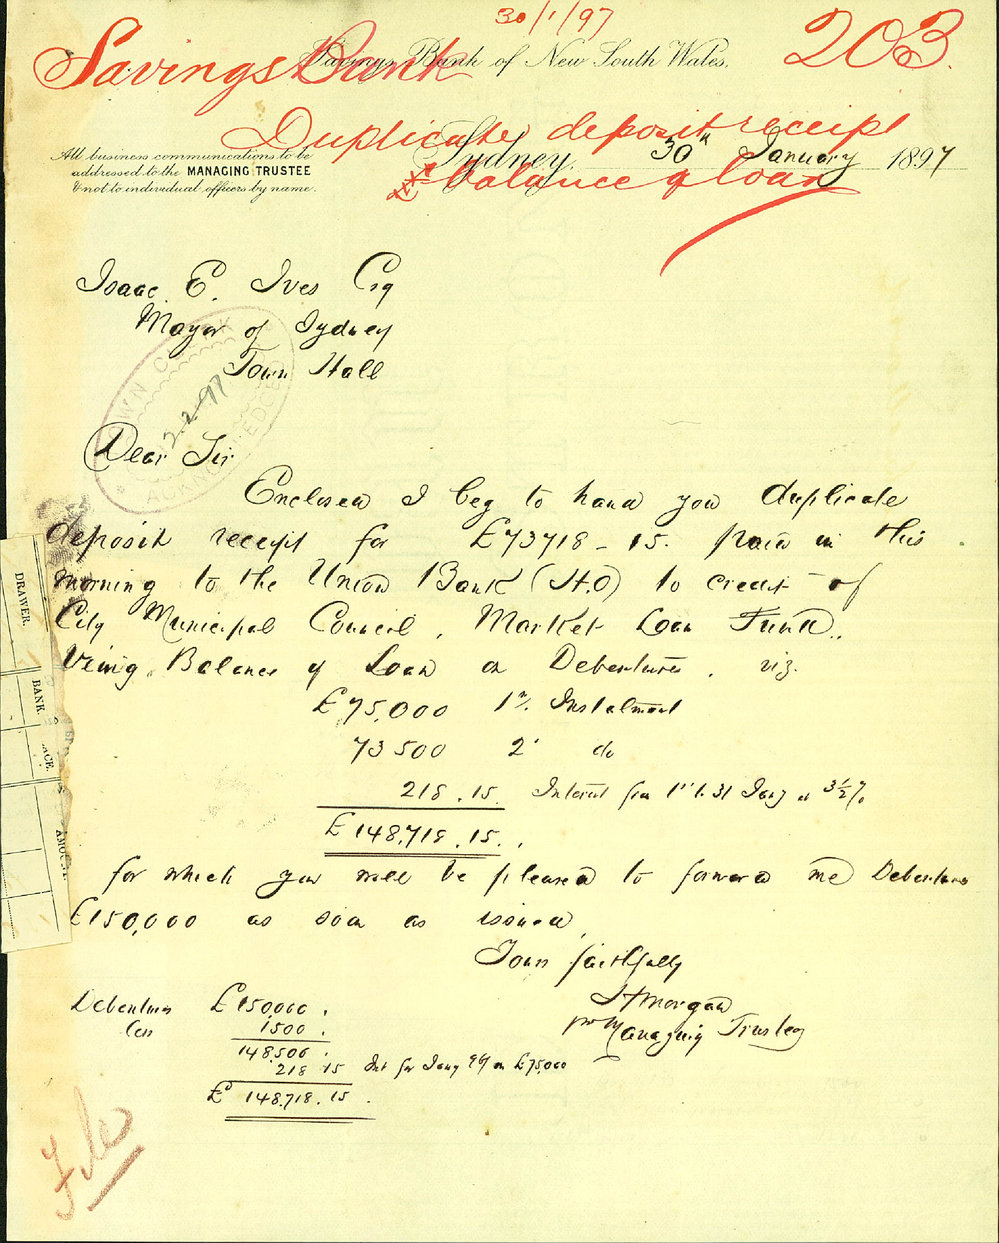 30/1/97
Savings Bank
203
Savings Bank of New South Wales.
Duplicate deposit receipt
re balance of loan
All business communications to be
addressed to the MANAGING TRUSTEE
& not to individual officers by name.
Sydney, 30th January 1897
Isaac E. Ives Esq
Mayor of Sydney
Town Hall
TOWN CLERK
2.2.97
ACKNOWLEDGED
Dear Sir
Enclosed I beg to hand you duplicate
deposit receipt for £73718-15. paid in this
morning to the Union Bank (H.O) to credit of
City Municipal Council, Market Loan Fund,
being Balance of Loan on Debentures, viz.
£75,000 1st Instalment
73500 2d do
218.15. Interest from 1st to 31 Jany at 3½%
£148,718.15.
for which you will be pleased to forward me Debentures
£150,000 as soon as issued
Yours faithfully
Morgan
pro Managing Trustee
Debentures £150000.
Less 1500.
148,500.
218 15 Int for Jany 97 on £75,000
£148,718.15.
File
DRAWER.
BANK.
AMOUNT.